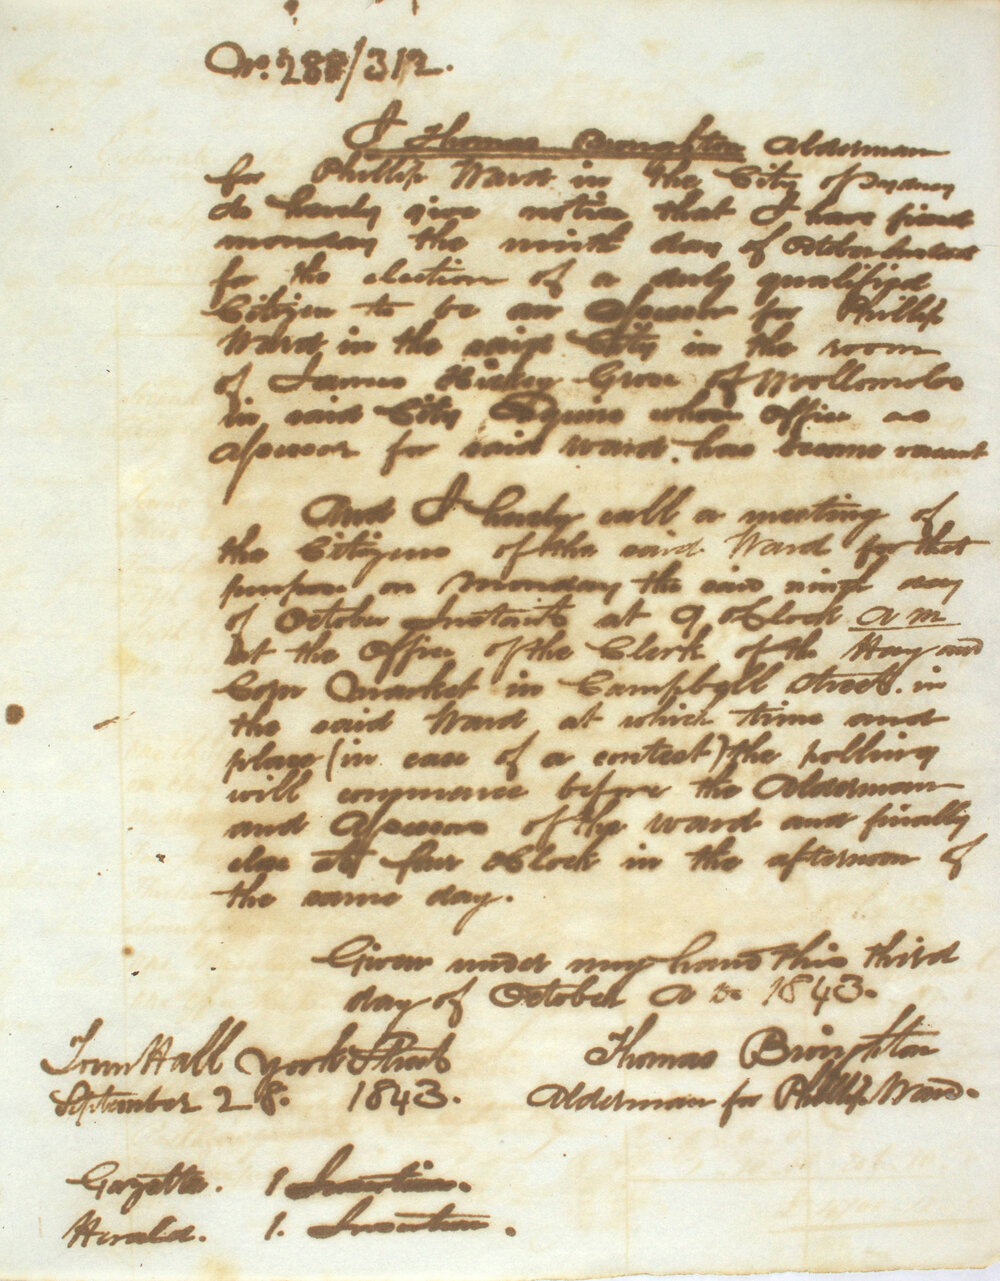 No. 288/312.
I Thomas Broughton Alderman
for Phillip Ward in the City of Sydney
do hereby give notice that I have fixed
monday the ninth day of October Instant
for the election of a duly qualified
Citizen to be an Assessor for Phillip
Ward in the said City in the room
of James Gross of Woolloomoloo
in said City Esquire whose office as
Assessor for said Ward has become vacant
And I hereby call a meeting of
the Citizens of the said Ward for that
purpose on Monday the said ninth day
of October Instant at 9 oClock a m
at the Office of the Clerk of the Hay and
Corn Market in Campbell Street in
the said Ward at which time and
place (in case of a contest) the polling
will commence before the Alderman
and Assessors of the Ward and finally
close at four oClock in the afternoon of
the same day.
Given under my hand this third
day of October A D. 1843.
Town Hall York Street
September 28. 1843.
Thomas Broughton
Alderman for Phillip Ward.
Gazette. 1 Insertion.
Herald. 1. Insertion.